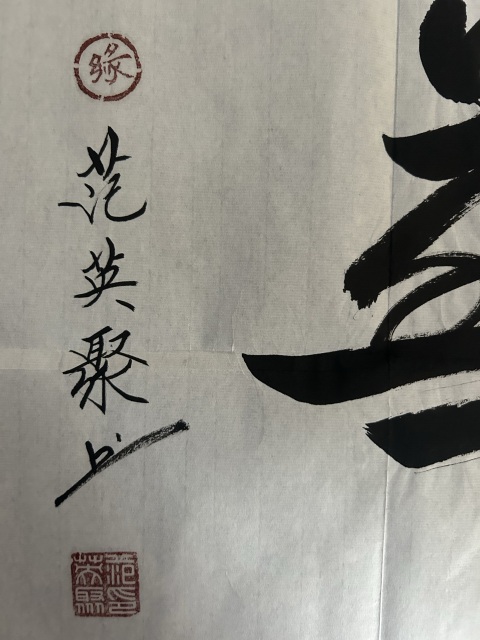 缘
范英聚书
范印
英聚